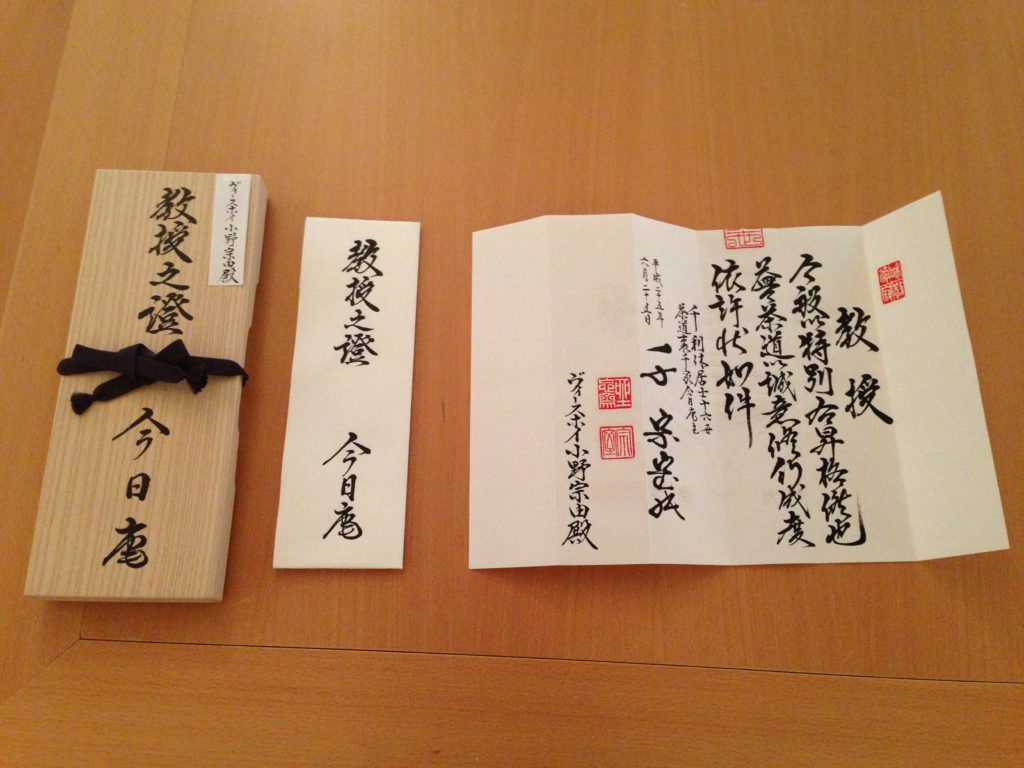 ヴィースホイ小野宗由殿
教授之證
今日庵
教授之證
今日庵
教授
今般以特別令昇格候也
益茶道以誠意修行成度
依許状如件
千利休居士十六世
茶道裏千家今日庵主
平成二十五年
六月二十五日
千宗室
ヴィースホイ小野宗由殿